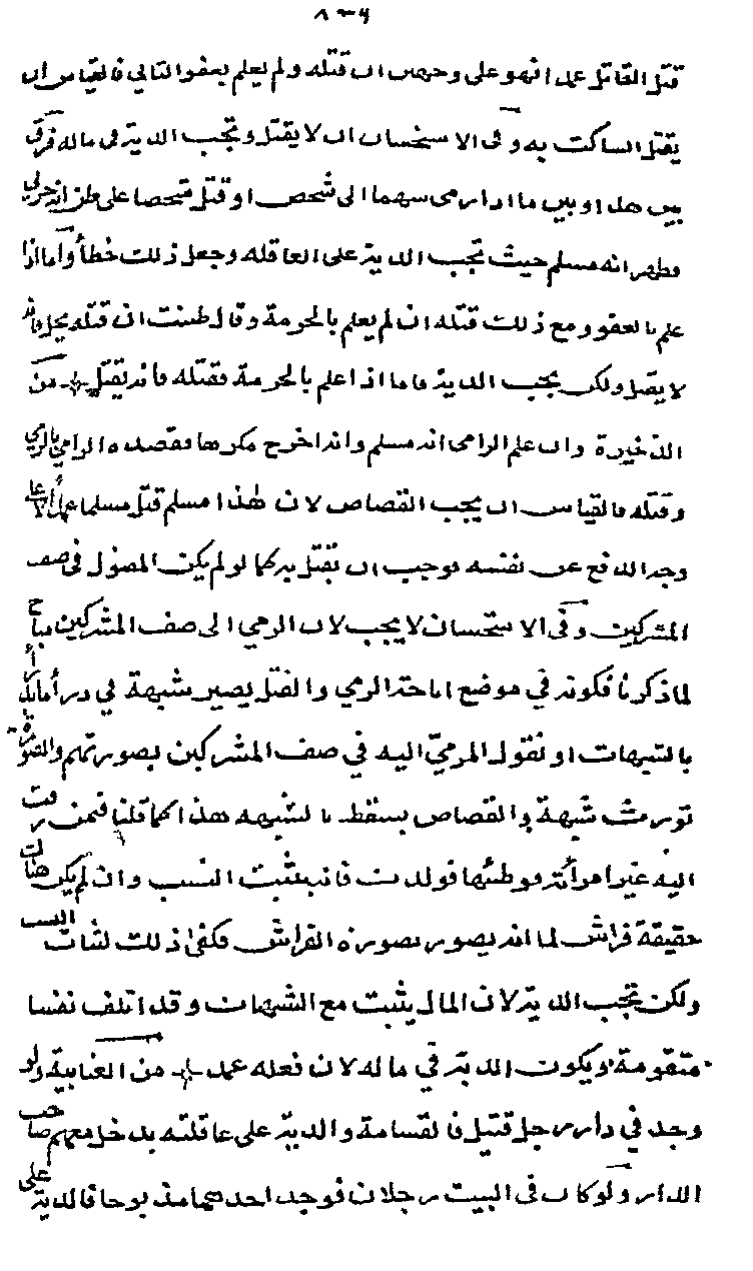 قتل القاتل عمدا فهو على وجهين ان قتله ولم يعلم بعفو الثاني فالقياس ان
يقتل الساكت به وفى الاستحسان ان لا يقتل وتجب الدية فى ماله فرق
بين هذا وبين ما اذا رمى سهما الى شخص او قتل شخصا على ظن انه حربي
فظهر انه مسلم حيث تجب الدية على العاقلة وجعل ذلك خطأ واما اذا
علم بالعفو ومع ذلك قتله ان لم يعلم بالحرمة وقال ظننت ان قتله يحل فانه
لا يقتل ولكن يجب الدية فاما اذا علم بالحرمة فقتله فانه يقتل من
الذخيرة وان علم الرامى انه مسلم وانه اخرج مكرها فقصده الرامي بالرمي
وقتله فالقياس ان يجب القصاص لان هذا مسلم قتل مسلما عمدا لا على
وجه الدفع عن نفسه فوجب ان يقتل به كما لو لم يكن المقتول في صف
المشركين وفى الاستحسان لا يجب لان الرمي الى صف المشركين مباح
لما ذكرنا فكونه في موضع اباحة الرمي والقتل يصير شبهة في درأ ما يندرأ
بالشبهات او نقول المرميّ اليه في صف المشركين بصورتهم والصورة
تورث شبهة والقصاص يسقط بالشبهه هذا كما قلنا فيمن زفت
اليه غير امرأته فوطئها فولدت فانه يثبت النسب وان لم يكن هنالك
حقيقة فراش لما انه يصور بصورة الفراش فكفى ذلك لثبات النسب
ولكن تجب الدية لان المال يثبت مع الشبهات وقد اتلف نفسا
متقومة ويكون الدية في ماله لان فعله عمد من العتابية ولو
وجد في دار رجل قتيل فالقسامة والدية على عاقلته يدخل معهم صاحب
الدار ولو كان فى البيت رجلان فوجد احدهما مذبوحا فالدية على